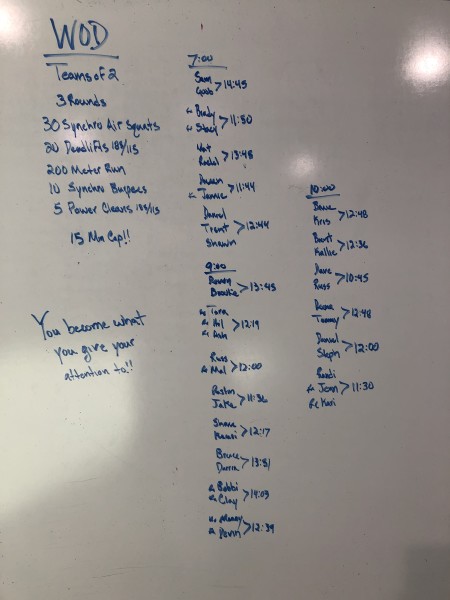 WOD
Teams of 2
3 Rounds
30 Synchro Air Squats
20 Deadlifts 185/115
200 Meter Run
10 Synchro Burpees
5 Power Cleans 185/115
15 Min Cap!!
You become what
you give your
attention to!!
7:00
Sam
> 14:45
Brady
> 11:50
Staci
> 13:48
Rachel
> 11:44
Jamie
Daniel
Trent > 12:44
Shawn
9:00
> 13:43
Tara
Hil > 12:19
Ash
Russ
Mal > 12:00
Jake > 11:36
Shane
> 12:17
Bruce
> 13:51
Bobbi
Clay > 14:03
> 12:39
10:00
Kris > 12:48
Brent
Kallie > 12:36
Dave
Russ > 10:45
Tammy > 12:48
Daniel
Steph > 12:00
Randi
> 11:30